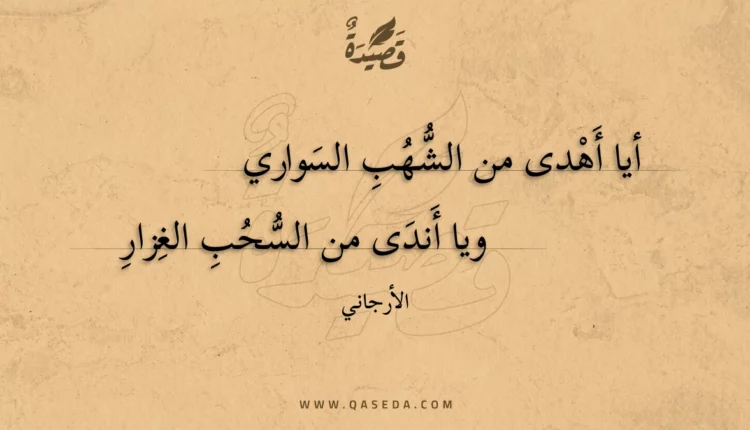 قَصِيْدَةٌ
أيا أَهْدى من الشُّهُبِ السَواري
ويا أَندَى من السُّحُبِ الغِزارِ
الأرجاني
WWW.QASEDA.COM